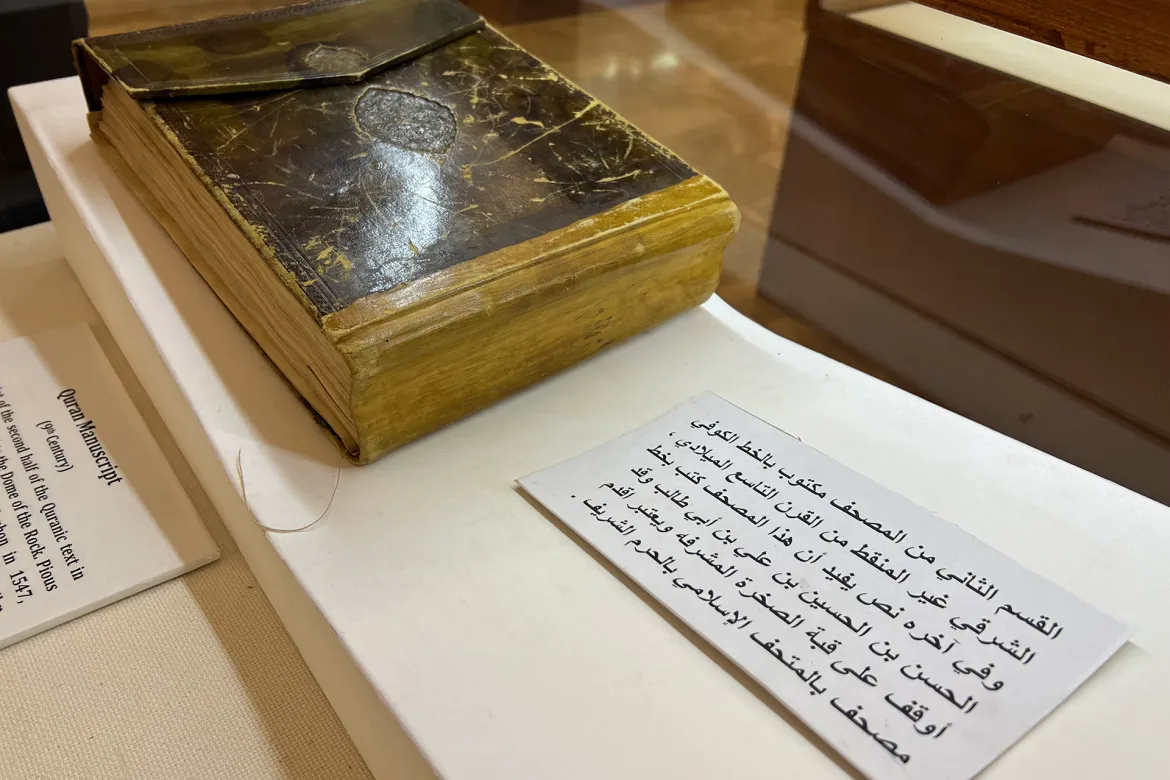 القسم الثاني من المصحف مكتوب بالخط الكوفي
الشرقي غير المنقط من القرن التاسع الميلادي ،
وفي آخره نص يفيد أن هذا المصحف كتب بخط
الحسن بن الحسين بن علي بن أبي طالب وقد
أوقف على قبة الصخرة المشرفه ويعتبر اقدم
مصحف بالمتحف الإسلامي بالحرم الشريف .
Quran Manuscript
(9th Century)
of the second half of the Quranic text in
the Dome of the Rock. Pious
in 1547,